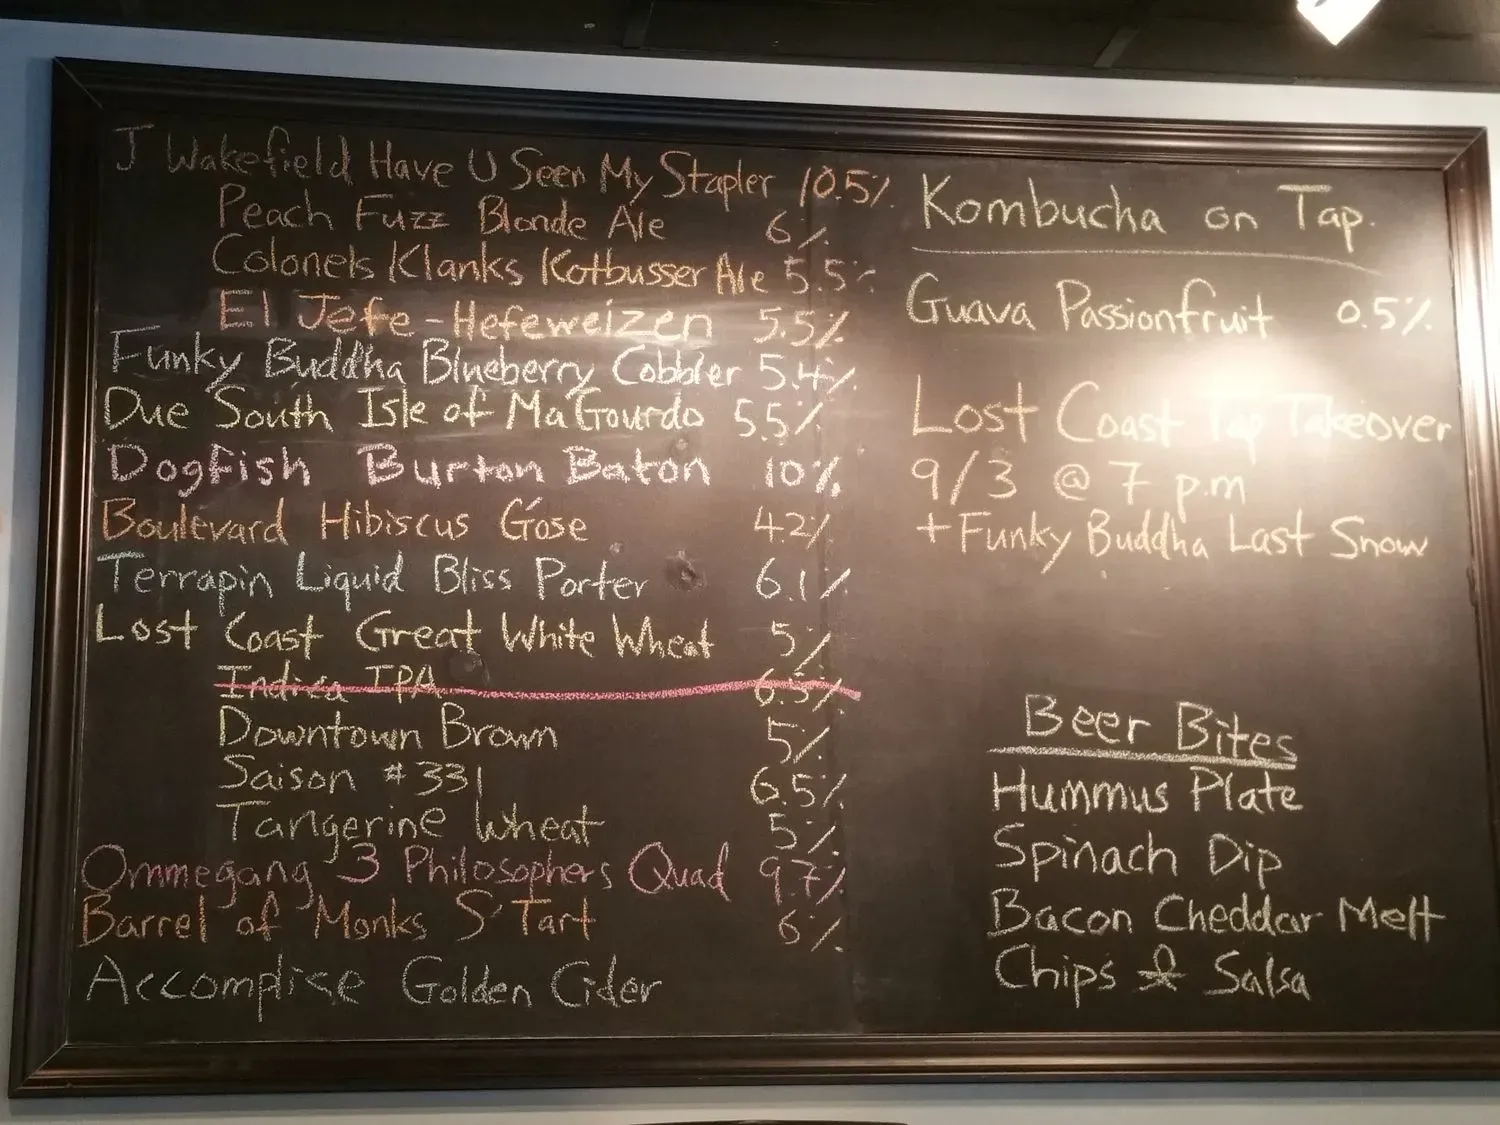 J Wakefield Have U Seen My Stapler 10.5%
Peach Fuzz Blonde Ale 6%
Colonels Klanks Kotbusser Ale 5.5%
El Jefe - Hefeweizen 5.5%
Funky Buddha Blueberry Cobbler 5.4%
Due South Isle of MaGourdo 5.5%
Dogfish Burton Baton 10%
Boulevard Hibiscus Gose 4.2%
Terrapin Liquid Bliss Porter 6.1%
Lost Coast Great White Wheat 5%
Indica IPA 6.5%
Downtown Brown 5%
Saison #331 6.5%
Tangerine Wheat 5%
Ommegang 3 Philosophers Quad 9.7%
Barrel of Monks S'Tart 6%
Accomplise Golden Cider
Kombucha on Tap.
Guava Passionfruit 0.5%
Lost Coast Tap Takeover
9/3 @ 7 p.m
+ Funky Buddha Last Snow
Beer Bites
Hummus Plate
Spinach Dip
Bacon Cheddar Melt
Chips & Salsa